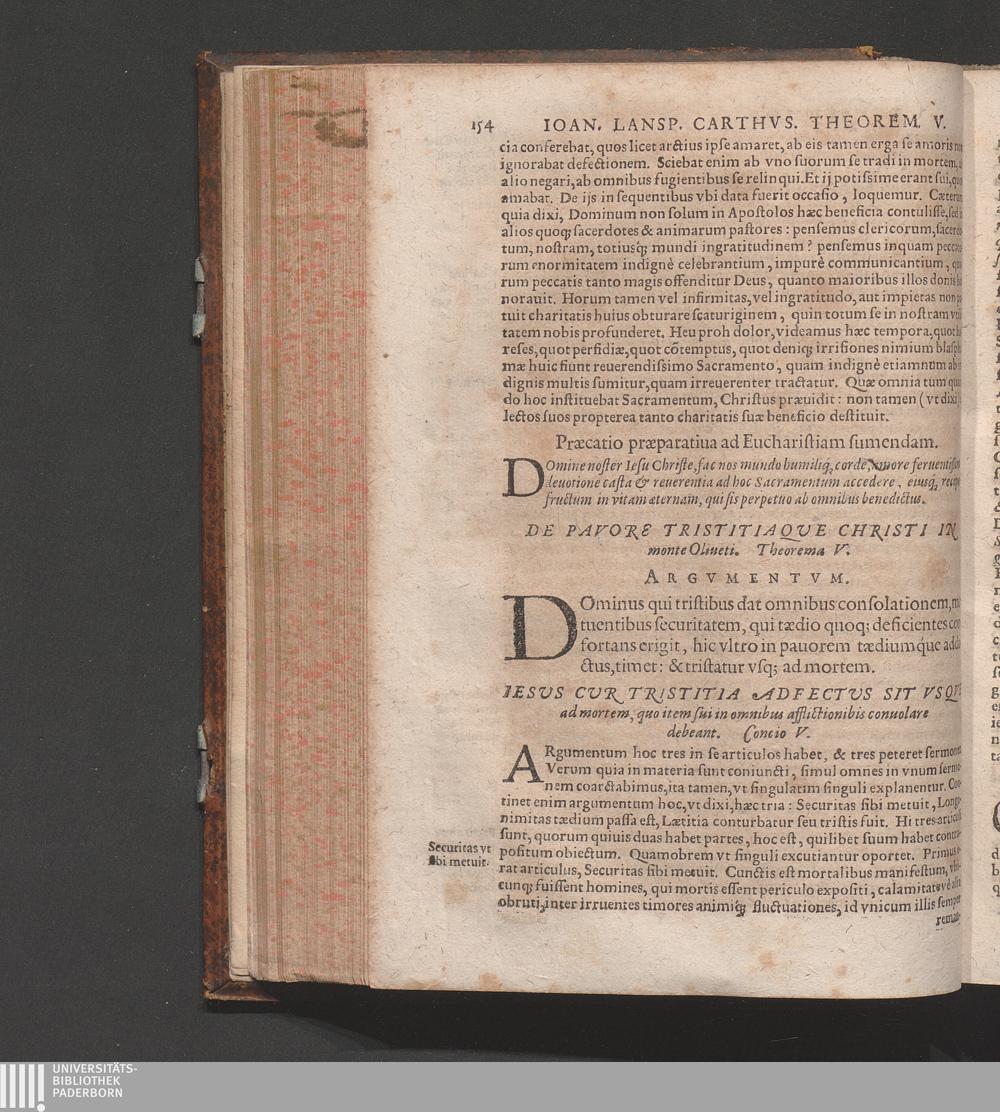 154 IOAN. LANSP. CARTHVS. THEOREM. V.
cia conferebat, quos licet arctius ipſe amaret, ab eis tamen erga ſe amoris
ignorabat defectionem. Sciebat enim ab vno ſuorum ſe tradi in mortem,
alio negari, ab omnibus fugientibus ſe relinqui. Et ij potiſsime erant ſui,
amabat. De ijs in ſequentibus vbi data fuerit occaſio, loquemur. Cæterum
quia dixi, Dominum non ſolum in Apoſtolos hæc beneficia contuliſſe, ſed
alios quoq; ſacerdotes & animarum paſtores: penſemus clericorum,
tum, noſtram, totiusq́; mundi ingratitudinem? penſemus inquam
rum enormitatem indignè celebrantium, impurè communicantium,
rum peccatis tanto magis offenditur Deus, quanto maioribus illos donis
norauit. Horum tamen vel infirmitas, vel ingratitudo, aut impietas non
tuit charitatis huius obturare ſcaturiginem, quin totum ſe in noſtram
tatem nobis profunderet. Heu proh dolor, videamus hæc tempora, quot
reſes, quot perfidiæ, quot cõtemptus, quot deniq; irriſiones nimium
mæ huic fiunt reuerendiſsimo Sacramento, quam indignè etiamnum
dignis multis ſumitur, quam irreuerenter tractatur. Quæ omnia tum
do hoc inſtituebat Sacramentum, Chriſtus præuidit: non tamen (vt dixi)
lectos ſuos propterea tanto charitatis ſuæ beneficio deſtituit.
Præcatio præparatiua ad Euchariſtiam ſumendam.
DOmine noſter Ieſu Chriſte, fac nos mundo humiliq́; corde, amore
deuotione caſta & reuerentia ad hoc Sacramentum accedere, eiusq́;
fructum in vitam æternam, qui ſis perpetuo ab omnibus benedictus.
DE PAVORE TRISTITIAQVE CHRISTI IN
monte Oliueti. Theorema V.
ARGVMENTVM.
DOminus qui triſtibus dat omnibus conſolationem,
tuentibus ſecuritatem, qui tædio quoq; deficientes
fortans erigit, hic vltro in pauorem tædiumque
ctus, timet: & triſtatur vſq; ad mortem.
IESVS CVR TRISTITIA ADFECTVS SIT VSQVE
ad mortem, quo item ſui in omnibus afflictionibis conuolare
debeant. Concio V.
ARgumentum hoc tres in ſe articulos habet, & tres peteret ſermones
Verum quia in materia ſunt coniuncti, ſimul omnes in vnum
nem coarctabimus, ita tamen, vt ſingulatim ſinguli explanentur. Con-
tinet enim argumentum hoc, vt dixi, hæc tria: Securitas ſibi metuit, Longa-
nimitas tædium paſſa eſt, Lætitia conturbatur ſeu triſtis fuit. Hi tres articuli
ſunt, quorum quiuis duas habet partes, hoc eſt, quilibet ſuum habet contra-
Securitas vt
ſibi metuit.
poſitum obiectum. Quamobrem vt ſinguli excutiantur oportet. Primus e-
rat articulus, Securitas ſibi metuit. Cunctis eſt mortalibus manifeſtum, vbi-
cunq; fuiſſent homines, qui mortis eſſent periculo expoſiti, calamitate vè alia
obruti, inter irruentes timores animiq́; fluctuationes, id vnicum illis ſemper
UNIVERSITÄTS-
BIBLIOTHEK
PADERBORN